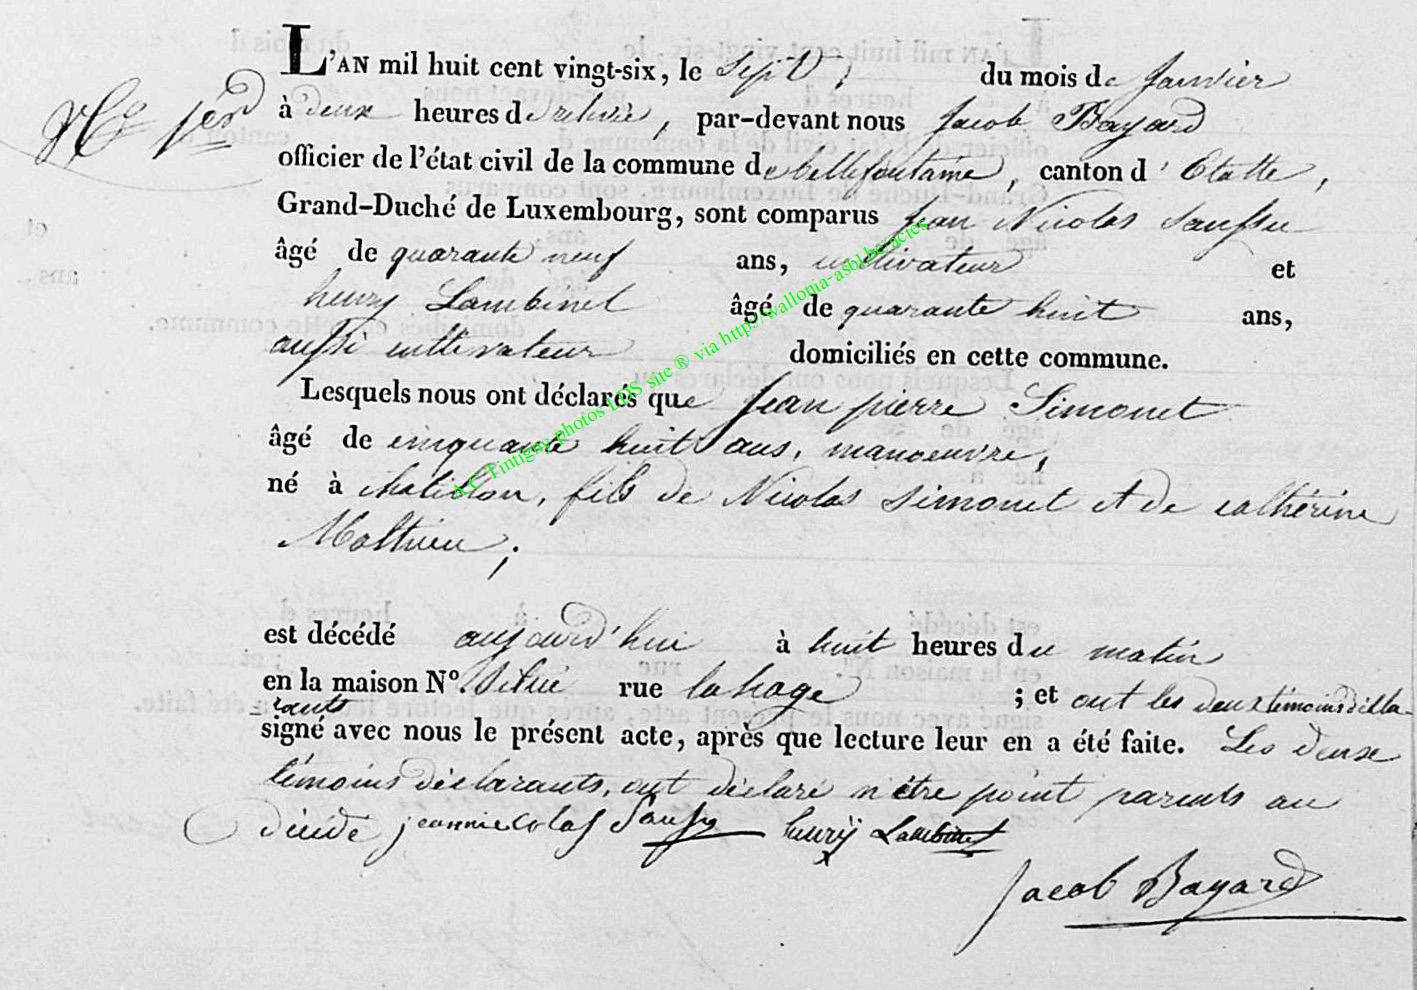 L'AN mil huit cent vingt-six, le Sept, du mois de Janvier
Nº 1er
à deux heures de relevée, par-devant nous Jacob Bayard
officier de l'état civil de la commune de bellefontaine, canton d'Etalle,
Grand-Duché de Luxembourg, sont comparus Jean Nicolas Saussu
âgé de quarante neuf ans, cultivateur et
henry Lambinet âgé de quarante huit ans,
aussi cultivateur domiciliés en cette commune.
Lesquels nous ont déclarés que Jean pierre Simonet
âgé de cinquante huit ans, manoeuvre,
né à chatillon, fils de Nicolas Simonet et de cathérine
Mathieu;
est décédé aujourd'hui à huit heures du matin
en la maison Nº. Située rue lahage ; et ont les deux témoins décla-
rants
signé avec nous le présent acte, après que lecture leur en a été faite. Les deux
témoins déclarants, ont déclaré n'être point parents au
décédé jeannicolas Saussu henrÿ Lambinet
Jacob Bayard
A.C. Tintigny photos LDS site ® via http://wallonia-asbl.be/acies